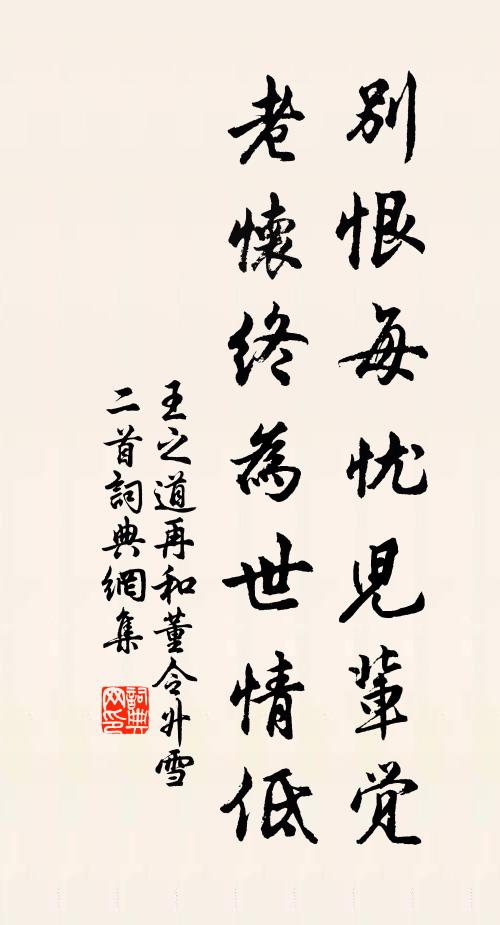 别恨每忧児輩觉
老懷终為世情低
王之道再和董令升雪
二首詞典網集
詞典网印